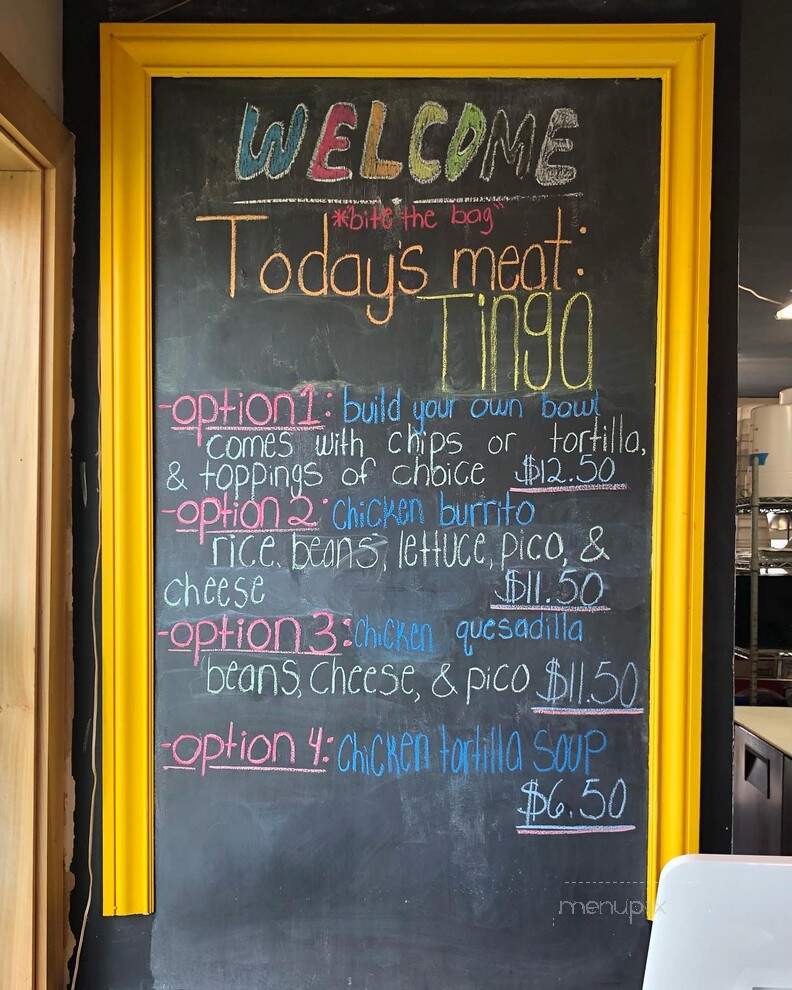 WELCOME
*"bite the bag"
Today's meat:
Tinga
-option 1: build your own bowl
comes with chips or tortilla,
& toppings of choice $12.50
-option 2: chicken burrito
rice, beans, lettuce, pico, &
cheese $11.50
-option 3: chicken quesadilla
beans, cheese, & pico $11.50
-option 4: chicken tortilla soup
$6.50
menupix